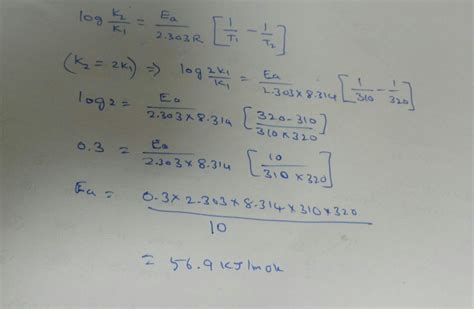 log K₂/K₁ = Ea/2.303R [1/T₁ - 1/T₂]
(K₂ = 2K₁) ⇒ log 2K₁/K₁ = Ea/2.303×8.314 [1/310 - 1/320]
log2 = Ea/2.303×8.314 [320-310/310×320]
0.3 = Ea/2.303×8.314 [10/310×320]
Ea = 0.3×2.303×8.314×310×320/10
= 56.9 KJ/mole